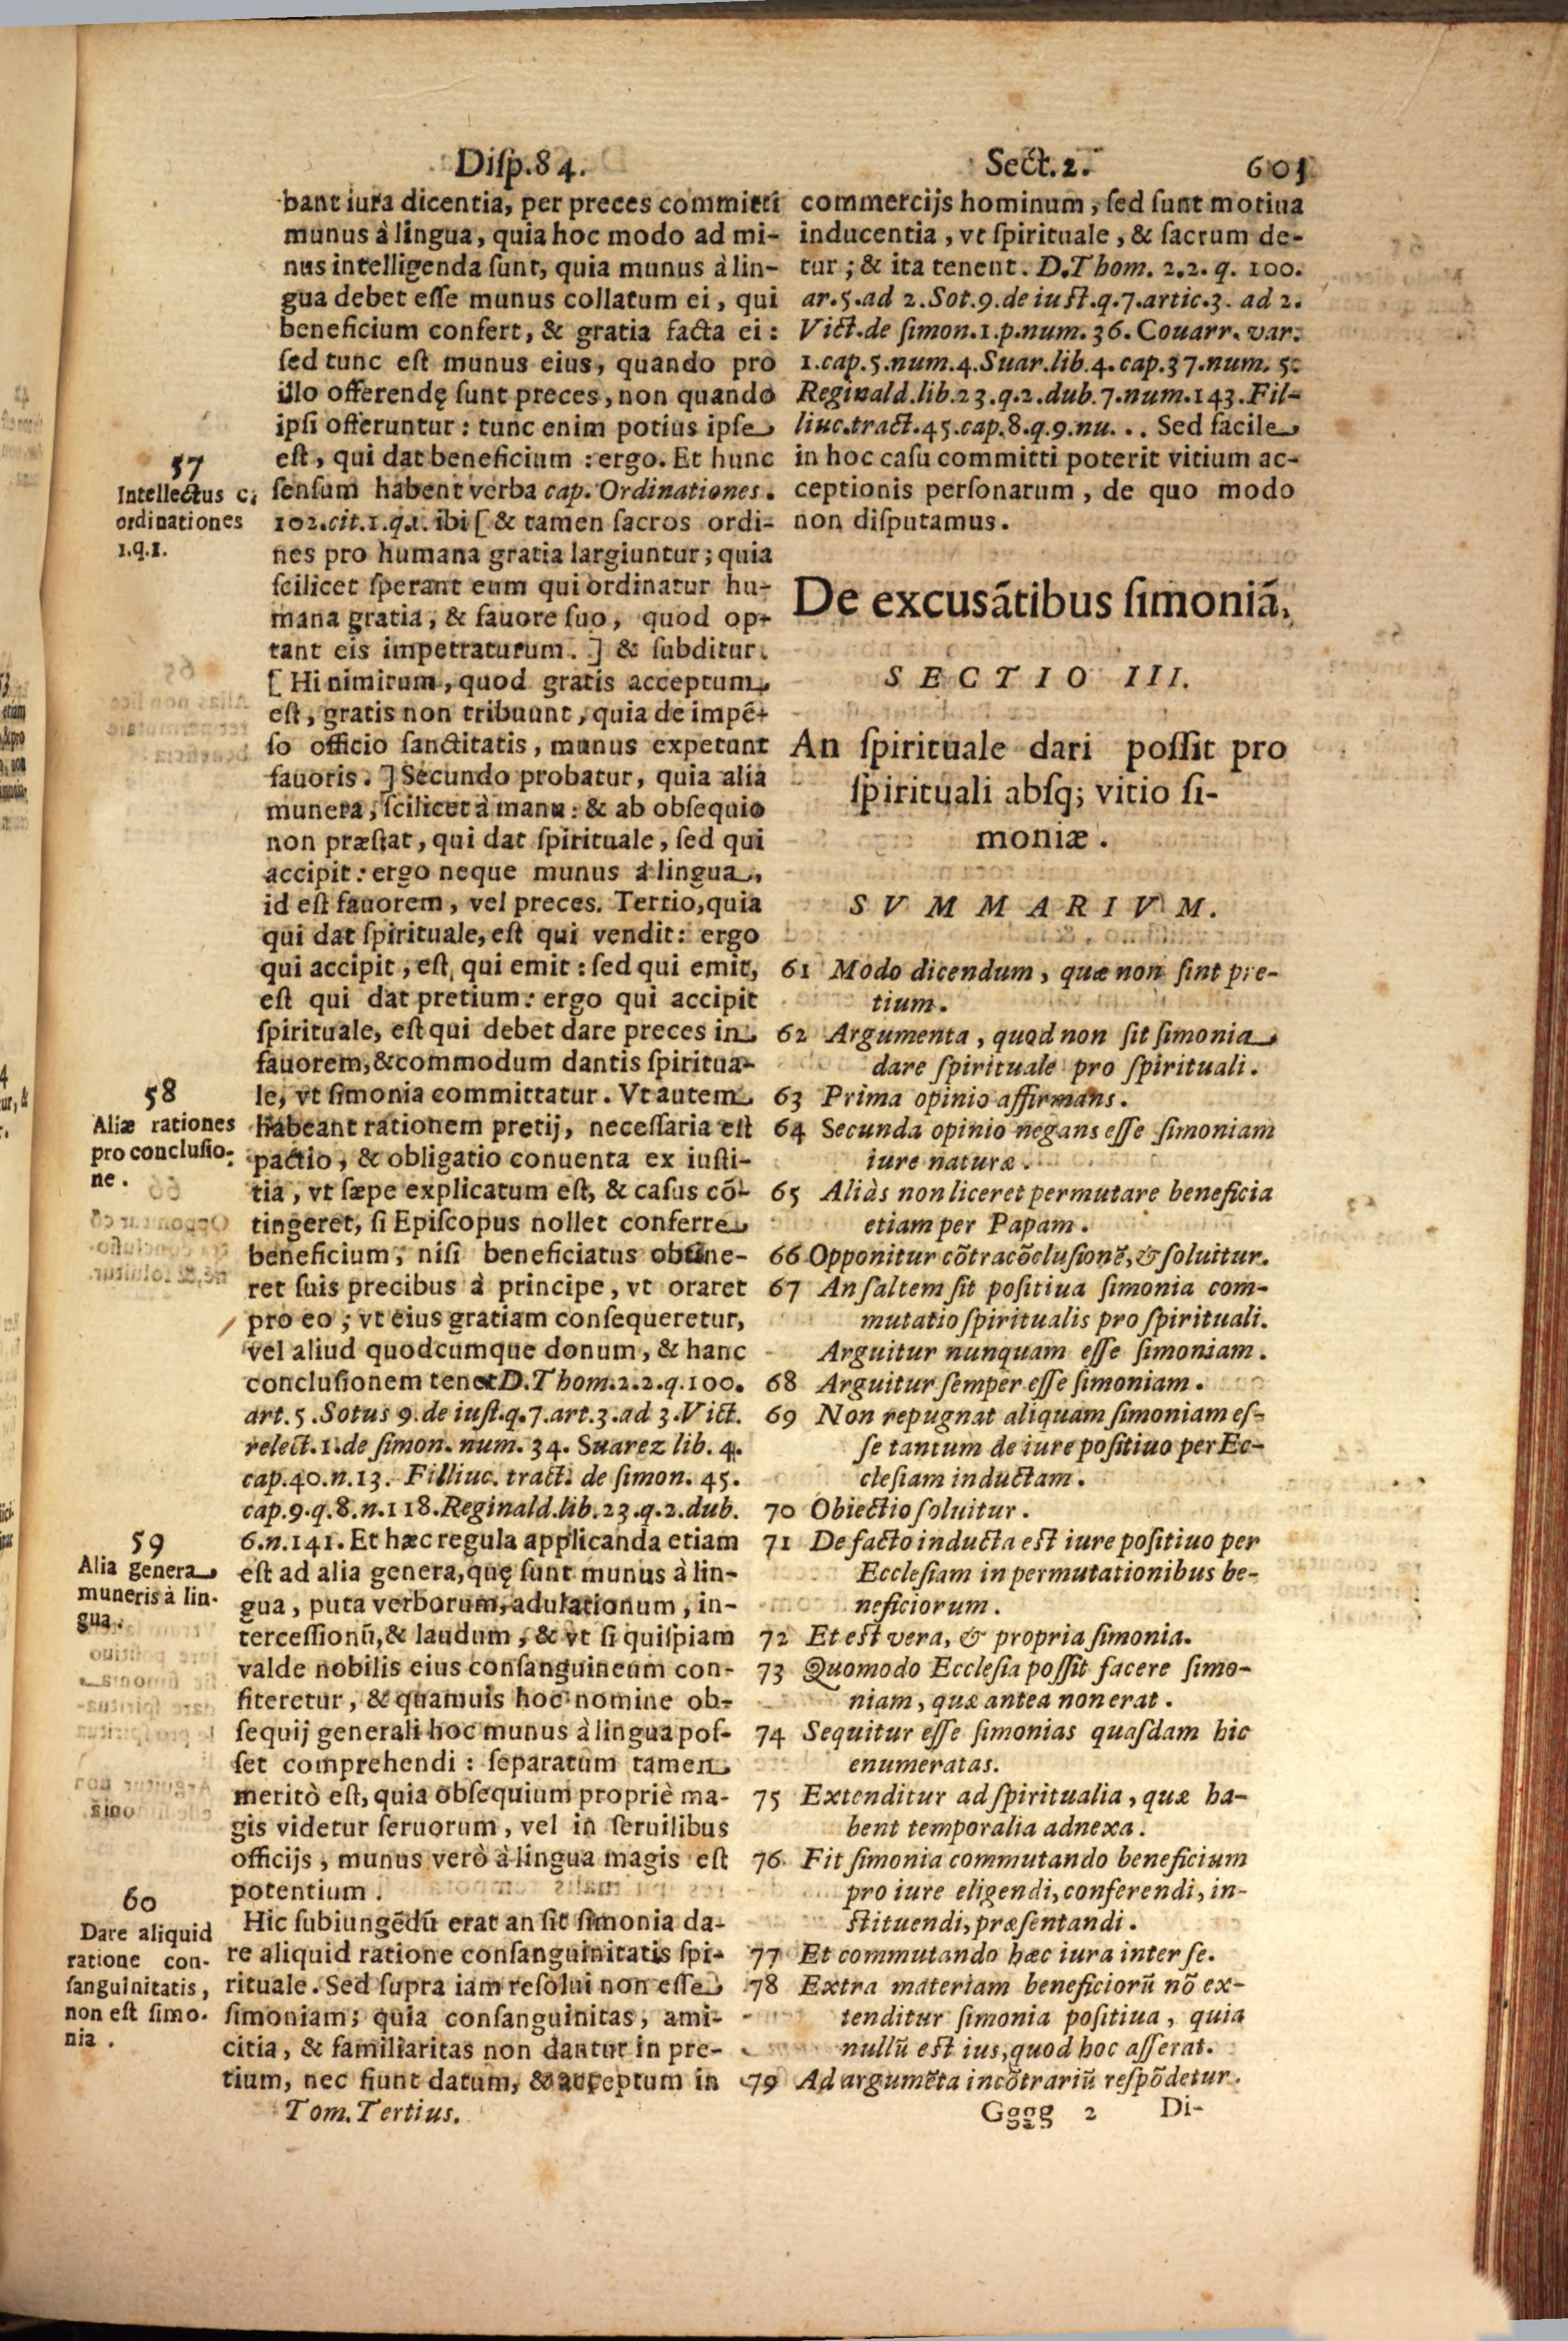 Disp.84.
Sect.2.
601
bant iura dicentia, per preces committi
munus à lingua, quia hoc modo ad mi-
nus intelligenda sunt, quia munus à lin-
gua debet esse munus collatum ei, qui
beneficium confert, & gratia facta ei:
sed tunc est munus eius, quando pro
illo offerendę sunt preces, non quando
ipsi offeruntur: tunc enim potius ipse
est, qui dat beneficium: ergo. Et hunc
sensum habent verba cap. Ordinationes.
102.cit.1.q.1. ibi [& tamen sacros ordi-
nes pro humana gratia largiuntur; quia
scilicet sperant eum qui ordinatur hu-
mana gratia, & fauore suo, quod op-
tant eis impetraturum.] & subditur.
[Hi nimirum, quod gratis acceptum
est, gratis non tribuunt, quia de impē-
so officio sanctitatis, munus expetunt
fauoris.] Secundo probatur, quia alia
munera, scilicet à manu: & ab obsequio
non præstat, qui dat spirituale, sed qui
accipit: ergo neque munus à lingua,
id est fauorem, vel preces. Tertio, quia
qui dat spirituale, est qui vendit: ergo
qui accipit, est, qui emit: sed qui emit,
est qui dat pretium: ergo qui accipit
spirituale, est qui debet dare preces in
fauorem, & commodum dantis spiritua-
le, vt simonia committatur. Vt autem
habeant rationem pretij, necessaria est
pactio, & obligatio conuenta ex iusti-
tia, vt sæpe explicatum est, & casus cō-
tingeret, si Episcopus nollet conferre
beneficium, nisi beneficiatus obtine-
ret suis precibus à principe, vt oraret
pro eo; vt eius gratiam consequeretur,
vel aliud quodcumque donum, & hanc
conclusionem tenet D.Thom.2.2.q.100.
art.5.Sotus 9.de iust.q.7.art.3.ad 3.Vict.
relect.1.de simon. num. 34. Suarez lib. 4.
cap.40.n.13. Filliuc. tract. de simon. 45.
cap.9.q.8.n.118.Reginald.lib.23.q.2.dub.
6.n.141. Et hæc regula applicanda etiam
est ad alia genera, quę sunt munus à lin-
gua, puta verborum, adulationum, in-
tercessionū, & laudum, & vt si quispiam
valde nobilis eius consanguineum con-
fiteretur, & quamuis hoc nomine ob-
sequij generali hoc munus à lingua pos-
set comprehendi: separatum tamen
meritò est, quia obsequium propriè ma-
gis videtur seruorum, vel in seruilibus
officijs, munus verò à lingua magis est
potentium.
Hic subiungēdū erat an sit simonia da-
re aliquid ratione consanguinitatis spi-
rituale. Sed supra iam resolui non esse
simoniam; quia consanguinitas, ami-
citia, & familiaritas non dantur in pre-
tium, nec fiunt datum, & acceptum in
Tom. Tertius.
57
Intellectus c.
ordinationes
1.q.1.
58
Aliæ rationes
pro conclusio-
ne.
59
Alia genera
muneris à lin-
gua.
60
Dare aliquid
ratione con-
sanguinitatis,
non est simo-
nia.
commercijs hominum, sed sunt motiua
inducentia, vt spirituale, & sacrum de-
tur; & ita tenent. D.Thom. 2.2. q. 100.
ar.5.ad 2.Sot.9.de iust.q.7.artic.3. ad 2.
Vict.de simon.1.p.num.36.Couarr. var.
1.cap.5.num.4.Suar.lib.4.cap.37.num. 5.
Reginald.lib.23.q.2.dub.7.num.143.Fil-
liuc.tract.45.cap.8.q.9.nu... Sed facile
in hoc casu committi poterit vitium ac-
ceptionis personarum, de quo modo
non disputamus.
De excusātibus simoniā,
SECTIO III.
An spirituale dari possit pro
spirituali absq; vitio si-
moniæ.
SVMMARIVM.
61 Modo dicendum, quæ non sint pre-
tium.
62 Argumenta, quod non sit simonia
dare spirituale pro spirituali.
63 Prima opinio affirmans.
64 Secunda opinio negans esse simoniam
iure naturæ.
65 Aliàs non liceret permutare beneficia
etiam per Papam.
66 Opponitur cōtra cōclusionē, & soluitur.
67 An saltem sit positiua simonia com-
mutatio spiritualis pro spirituali.
Arguitur nunquam esse simoniam.
68 Arguitur semper esse simoniam.
69 Non repugnat aliquam simoniam es-
se tantum de iure positiuo per Ec-
clesiam inductam.
70 Obiectio soluitur.
71 De facto inducta est iure positiuo per
Ecclesiam in permutationibus be-
neficiorum.
72 Et est vera, & propria simonia.
73 Quomodo Ecclesia possit facere simo-
niam, quæ antea non erat.
74 Sequitur esse simonias quasdam hic
enumeratas.
75 Extenditur ad spiritualia, quæ ha-
bent temporalia adnexa.
76 Fit simonia commutando beneficium
pro iure eligendi, conferendi, in-
stituendi, præsentandi.
77 Et commutando hæc iura inter se.
78 Extra materiam beneficiorū nō ex-
tenditur simonia positiua, quia
nullū est ius, quod hoc asserat.
79 Ad argumēta in cōtrariū respōdetur.
Gggg 2
Di-